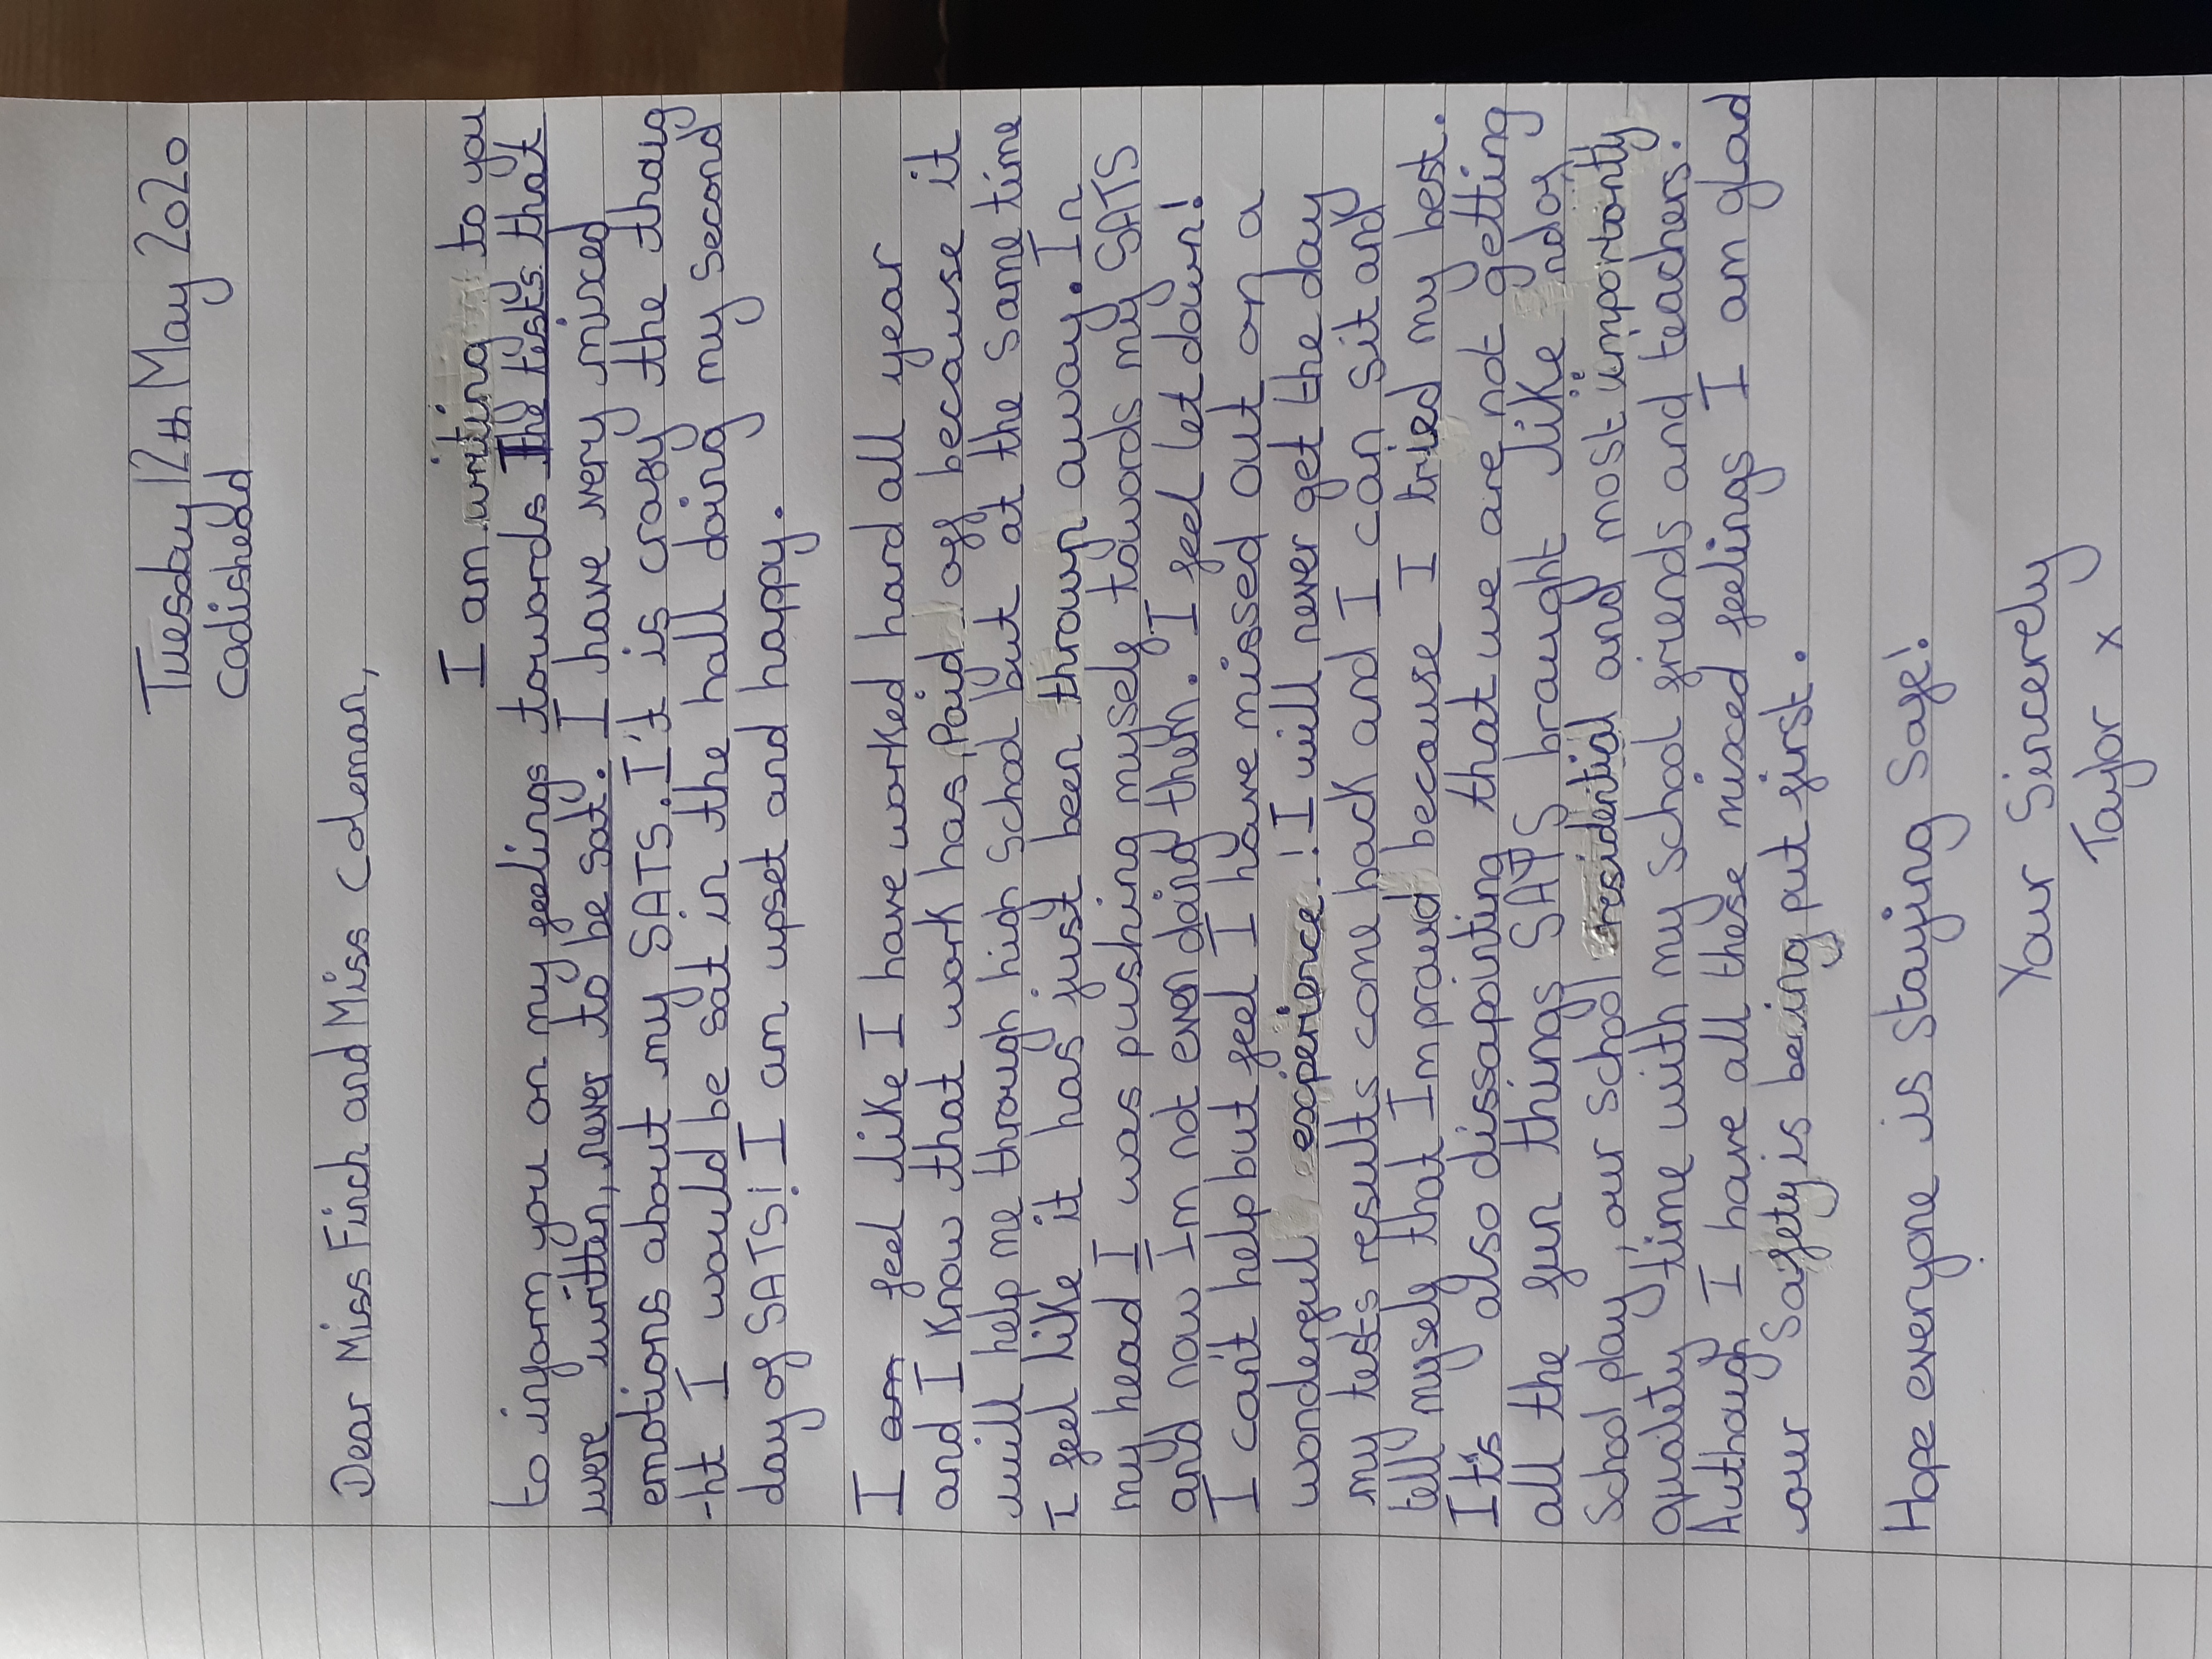 Tuesday 12th May 2020
Cadishead
Dear Miss Finch and Miss Coleman,
I am writing to you
to inform you on my feelings towords The tests that
were written, never to be sat. I have very mixed
emotions about my SATS. I't is crasy the thoug
-ht I would be sat in the hall doing my second
day of SATS! I am upset and happy.
I am feel like I have worked hard all year
and I Know that work has Paid off because it
will help me through high school but at the same time
I feel like it has just been thrown away. In
my head I was pushing myself towards my SATS
and now Im not even doing them. I feel let down!
I can't help but feel I have missed out on a
wonderful experience! I will never get the day
my tests results come back and I can sit and
tell myself that Im proud because I tried my best.
It's also dissapointing that we are not getting
all the fun things SATS brought like : ndoy
school play, our school residential and most importantly
quality time with my school friends and teachers.
Authough I have all these mixed feelings I am glad
our safety is being put first.
Hope everyone is Staying Safe!
Your Sincerely
Taylor x